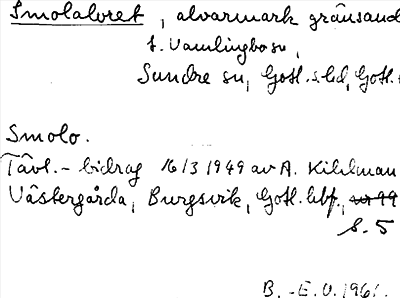 Smolalvret, alvarmark gränsand
t. Vamlingbo sn,
Sundre sn, Gotl. s. hd, Gotl.
Smolo.
Tävl.-bidrag 16/3 1949 av A. Kihlman
Västergårda, Burgsvik, Gotl.
s. 5
B. -E.O. 1961.